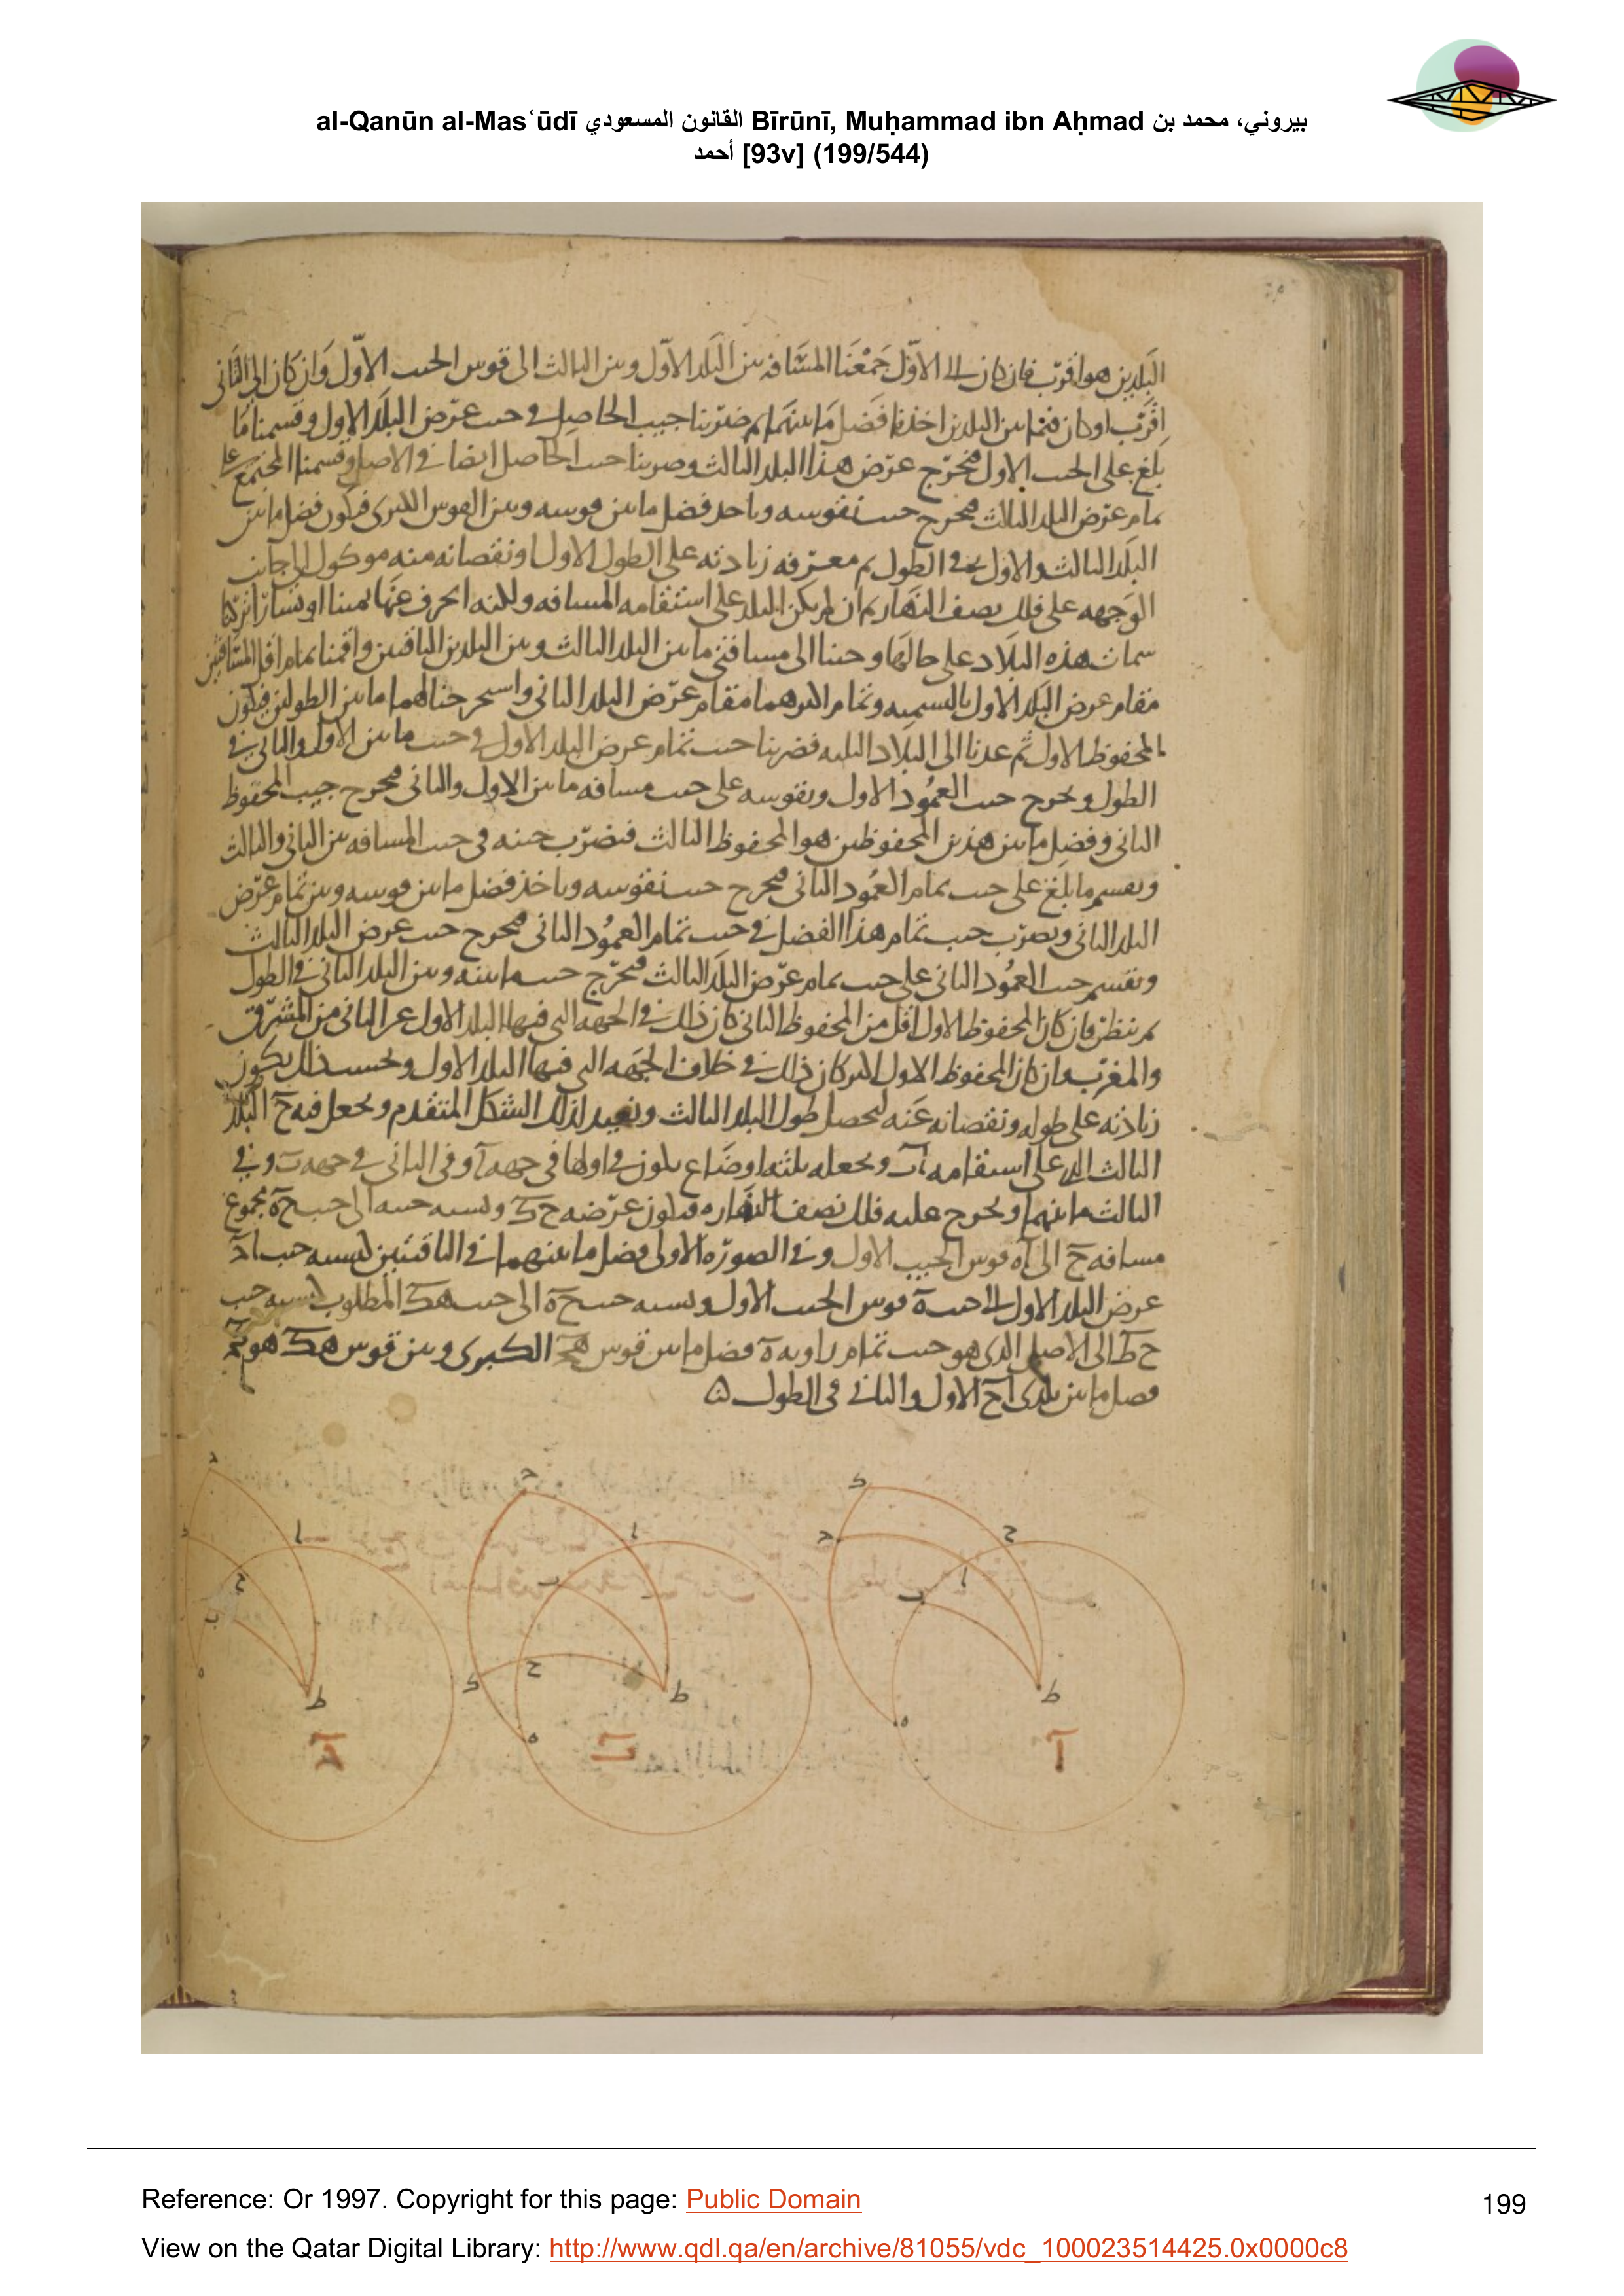 al-Qanūn al-Masʿūdī القانون المسعودي Bīrūnī, Muḥammad ibn Aḥmad بيروني، محمد بن
أحمد [93v] (199/544)
البلدين هو اقرب فان كان الى الاول جمعنا المسافه بين البلد الاول وبين الثالث الى قوس الجيب الاول وان كان الى الثانى
اقرب او كان فيما بين البلدين اخذنا فضل ما بينهما ثم ضربنا جيب الحاصل فى جيب عرض البلد الاول وقسمنا ما
بلغ على الجيب الاول فيخرج عرض هذا البلد الثالث وضربنا جيب الحاصل ايضا فى الاصل وقسمنا المجتمع على
تمام عرض البلد الثالث فيخرج جيب نقوسه وناخذ فضل ما بين قوسه وبين القوس الكبرى فيكون فضل ما بين
البلد الثالث والاول فى الطول ثم معرفه زيادته على الطول الاول او نقصانه منه موكول الى جانب
الوجهه على فلك نصف النهار ثم ان لم يكن البلد على استقامه المسافه ولكنه انحرف عنها يمينا او يسارا تركنا
سمات هذه البلاد على حالها وجئنا الى مسافتى ما بين البلد الثالث وبين البلدين الباقيين واقمنا تمام اقل المسافتين
مقام عرض البلد الاول بالتسميه وتمام اكبرهما مقام عرض البلد الثانى واستخرجنا لهما ما بين الطولين فيكون
المحفوظ الاول ثم عدنا الى البلاد الثلثه فضربنا جيب تمام عرض البلد الاول فى جيب ما بين الاول والثانى فى
الطول ويخرج جيب العمود الاول ونقوسه على جيب مسافه ما بين الاول والثانى فيخرج جيب المحفوظ
الثانى وفضل ما بين هذين المحفوظين هو المحفوظ الثالث فنضرب جيبه فى جيب المسافه بين الثانى والثالث
ونقسم ما بلغ على جيب تمام العمود الثانى فيخرج جيب نقوسه وناخذ فضل ما بين قوسه وبين تمام عرض
البلد الثانى ونضرب جيب تمام هذا الفضل فى جيب تمام العمود الثانى فيخرج جيب عرض البلد الثالث
ونقسم جيب العمود الثانى على جيب تمام عرض البلد الثالث فيخرج جيب ما بينه وبين البلد الثانى فى الطول
ثم ننظر فان كان المحفوظ الاول اقل من المحفوظ الثانى كان ذلك فى الجهه التى فيها البلد الاول عن الثانى من المشرق
والمغرب وان كان المحفوظ الاول اكبر كان ذلك فى خلاف الجهه التى فيها البلد الاول وبحسب ذلك يكون
زيادته على طوله ونقصانه عنه ليحصل طول البلد الثالث ونعيد لذلك الشكل المتقدم ونجعل فيه ح البلد
الثالث على استقامه اب ونجعله بثلثه اوضاع يكون فى اولها فى جهه ا وفى الثانى فى جهه ب وفى
الثالث ما بينهما ويخرج عليه فلك نصف النهار ه فيكون عرضه ح ك ونسبه جيبه الى جيب ح ه مجموع
مسافه ح الى ا ه قوس الجيب الاول وفى الصوره الاولى فضل ما بينهما فى الباقيتين كنسبه جيب اد
عرض البلد الاول الى جيب ه قوس الجيب الاول ونسبه جيب ح ه الى جيب هك المطلوب كنسبه جيب
ح ط الى الاصل الذى هو جيب تمام زاويه ه فضل ما بين قوس هج الكبرى وبين قوس هك هو
فضل ما بين بلدى ا ح الاول والثانى فى الطول
ك ح د ا ب ه ط ا
د ا ب ح ك ه ط ب
د ا ح ب ه ط ج
Reference: Or 1997. Copyright for this page: Public Domain
199
View on the Qatar Digital Library: http://www.qdl.qa/en/archive/81055/vdc_100023514425.0x0000c8